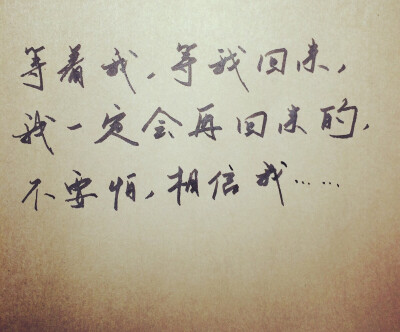 等着我，等我回来，
我一定会再回来的，
不要怕，相信我……